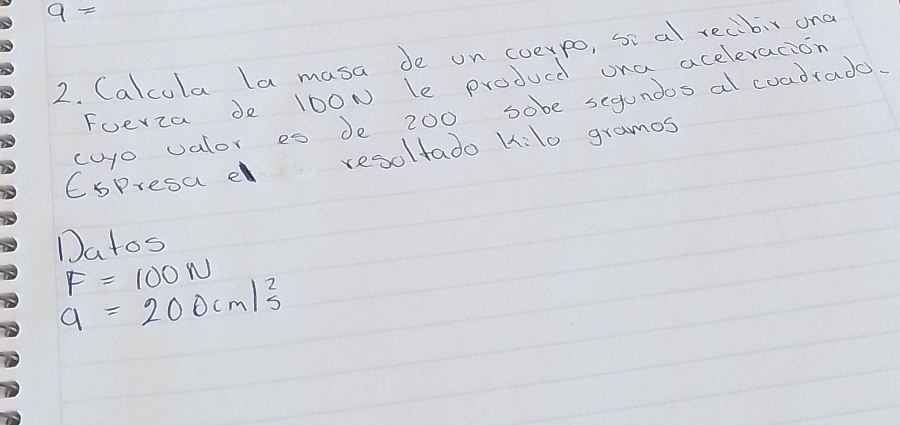 a =
2. Calcula la masa de un cuerpo, si al recibir una
Fuerza de 100N le produce una aceleración
cuyo valor es de 200 sobe segundos al cuadrado.
Espresa el resoltado Kilo gramos
Datos
F = 100N
a = 200cm/s²